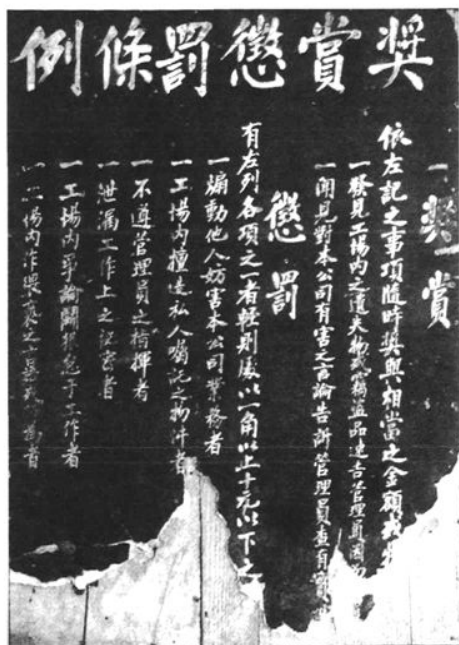 獎賞懲罰條例
一獎賞
依左記之事項隨時獎與相當之金額或
一發見工場內之遺失物或竊盜品速告管理員因
一聞見對本公司有害之言論告訴管理員查有
懲罰
有左列各項之一者輕則處以一角以上十元以下之
一煽動他人妨害本公司業務者
一工場內擅造私人囑託之物件者
一不遵管理員之指揮者
一泄漏工作上之祕密者
一工場內爭論鬪狠怠于工作者
一工場內作猥褻之言